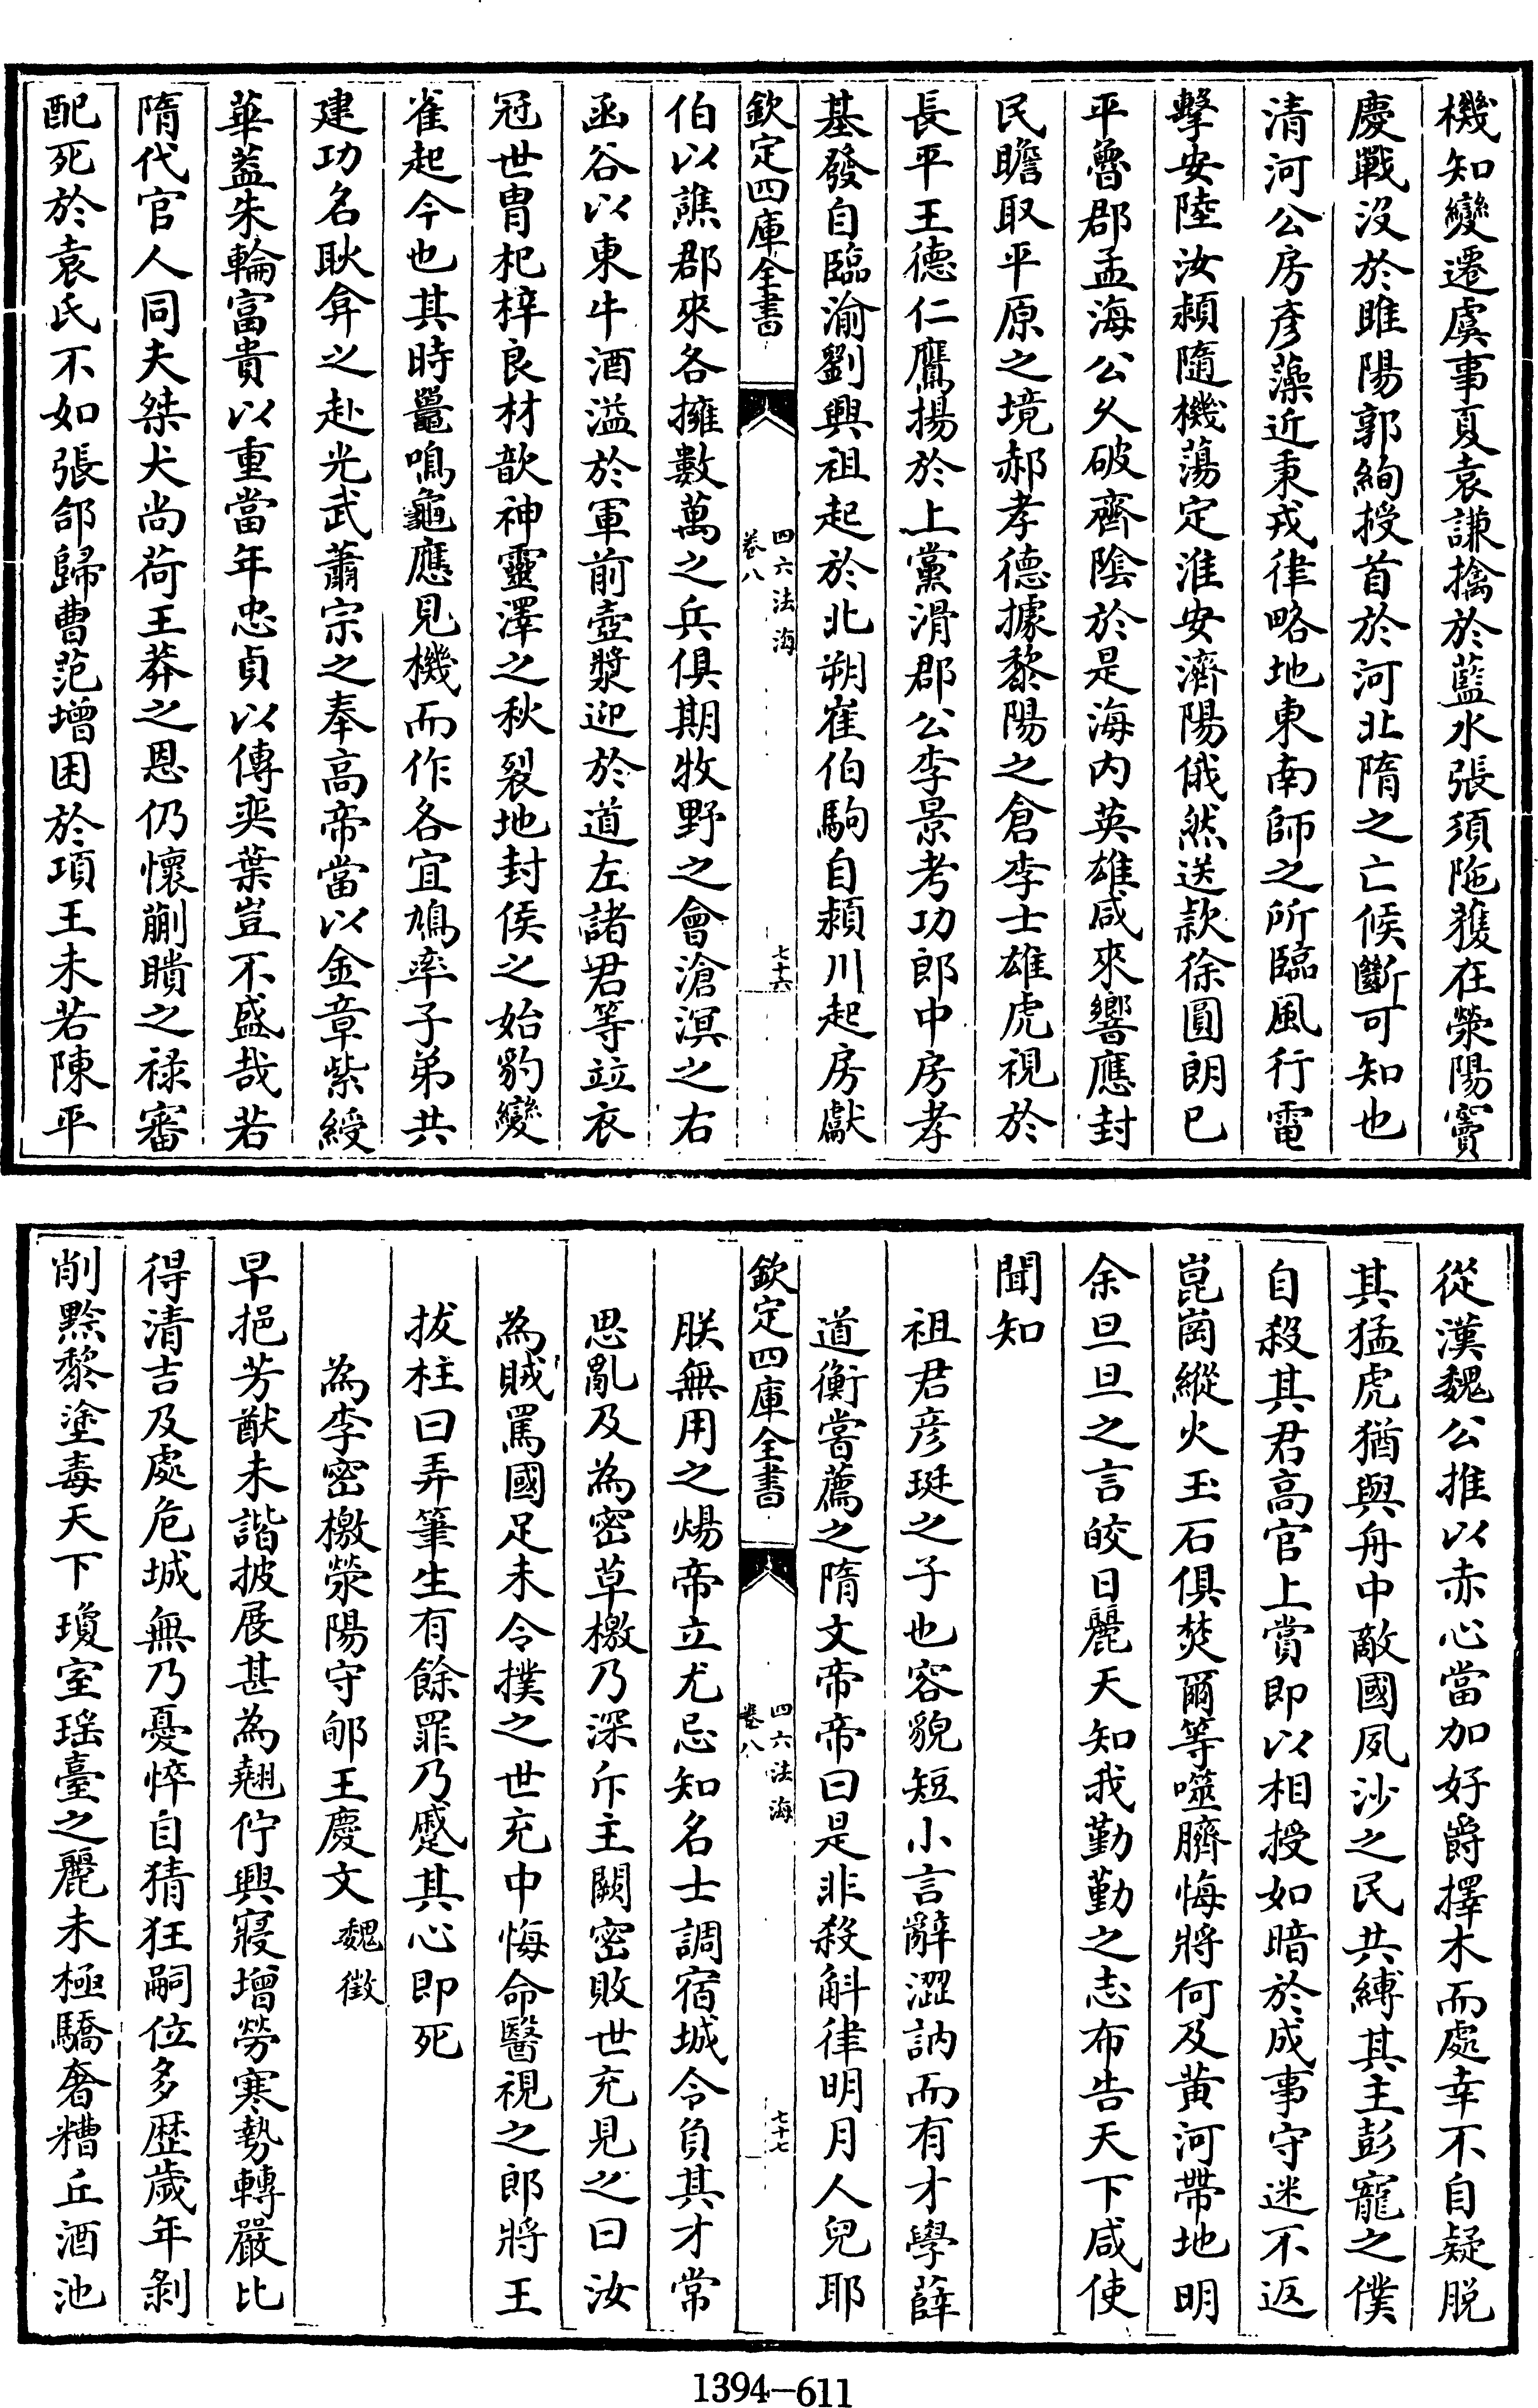 機知變遷虞事夏袁謙擒於藍水張須陁獲在滎陽竇
慶戰沒於雎陽郭絢授首於河北隋之亡候斷可知也
清河公房彥藻近秉戎律略地東南師之所臨風行電
擊安陸汝潁隨機蕩定淮安濟陽俄然送款徐圓朗已
平魯郡孟海公乆破齊隂於是海內英雄咸來響應封
民瞻取平原之境郝孝德據黎陽之倉李士雄虎視於
長平王德仁鷹揚於上黨滑郡公李景考功郎中房孝
基發自臨渝劉興祖起於北朔崔伯駒自潁川起房獻
欽定四庫全書
四六法海
卷八
七十六
伯以譙郡來各擁數萬之兵俱期牧野之會滄溟之右
函谷以東牛酒溢於軍前壺漿迎於道左諸君等竝衣
冠世胄杞梓良材歆神靈澤之秋裂地封侯之始豹變
雀起今也其時鼉鳴龜應見機而作各宜鳩率子弟共
建功名耿弇之赴光武蕭宗之奉高帝當以金章紫綬
華蓋朱輪富貴以重當年忠貞以傳奕葉豈不盛哉若
隋代官人同夫桀犬尚荷王莽之恩仍懷蒯聵之祿審
配死於袁氏不如張郃歸曹范增困於項王未若陳平
從漢魏公推以赤心當加好爵擇木而處幸不自疑脱
其猛虎猶與舟中敵國夙沙之民共縛其主彭寵之僕
自殺其君高官上賞即以相授如暗於成事守迷不返
崑崗縱火玉石俱焚爾等噬臍悔將何及黃河帶地明
余旦旦之言皎日麗天知我勤勤之志布告天下咸使
聞知
祖君彥珽之子也容貌短小言辭澀訥而有才學薛
道衡嘗薦之隋文帝帝曰是非殺斛律明月人兒耶
欽定四庫全書
四六法海
卷八
七十七
朕無用之煬帝立尤忌知名士調宿城令負其才常
思亂及為密草檄乃深斥主闕密敗世充見之曰汝
為賊罵國足未令撲之世充中悔命醫視之郎將王
拔柱曰弄筆生有餘罪乃蹙其心即死
為李密檄滎陽守郇王慶文 魏徵
早挹芳猷未諧披展甚為翹佇興寢增勞寒勢轉嚴比
得清吉及處危城無乃憂悴自猜狂嗣位多歷歲年剝
削黔黎塗毒天下瓊室瑤臺之麗未極驕奢糟丘酒池
1394-611